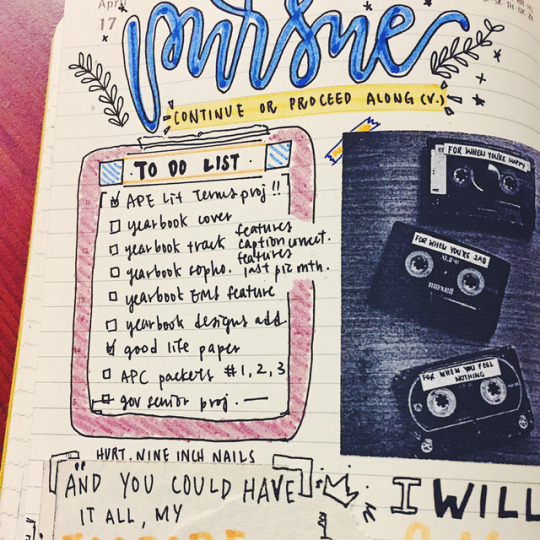 April
17
pursue
CONTINUE OR PROCEED ALONG (V.)
TO DO LIST
APE Lit Terms proj !!
yearbook cover
yearbook track features
caption
yearbook sopho. features
last pic mth.
yearbook EMS feature
yearbook designs add
good life paper
APC packets #1, 2, 3
gov senior proj. —
FOR WHEN YOU'RE HAPPY
FOR WHEN YOU'RE SAD
maxell
FOR WHEN YOU FEEL
NOTHING
HURT. NINE INCH NAILS
AND YOU COULD HAVE
IT ALL, MY
EMPIRE
I WILL